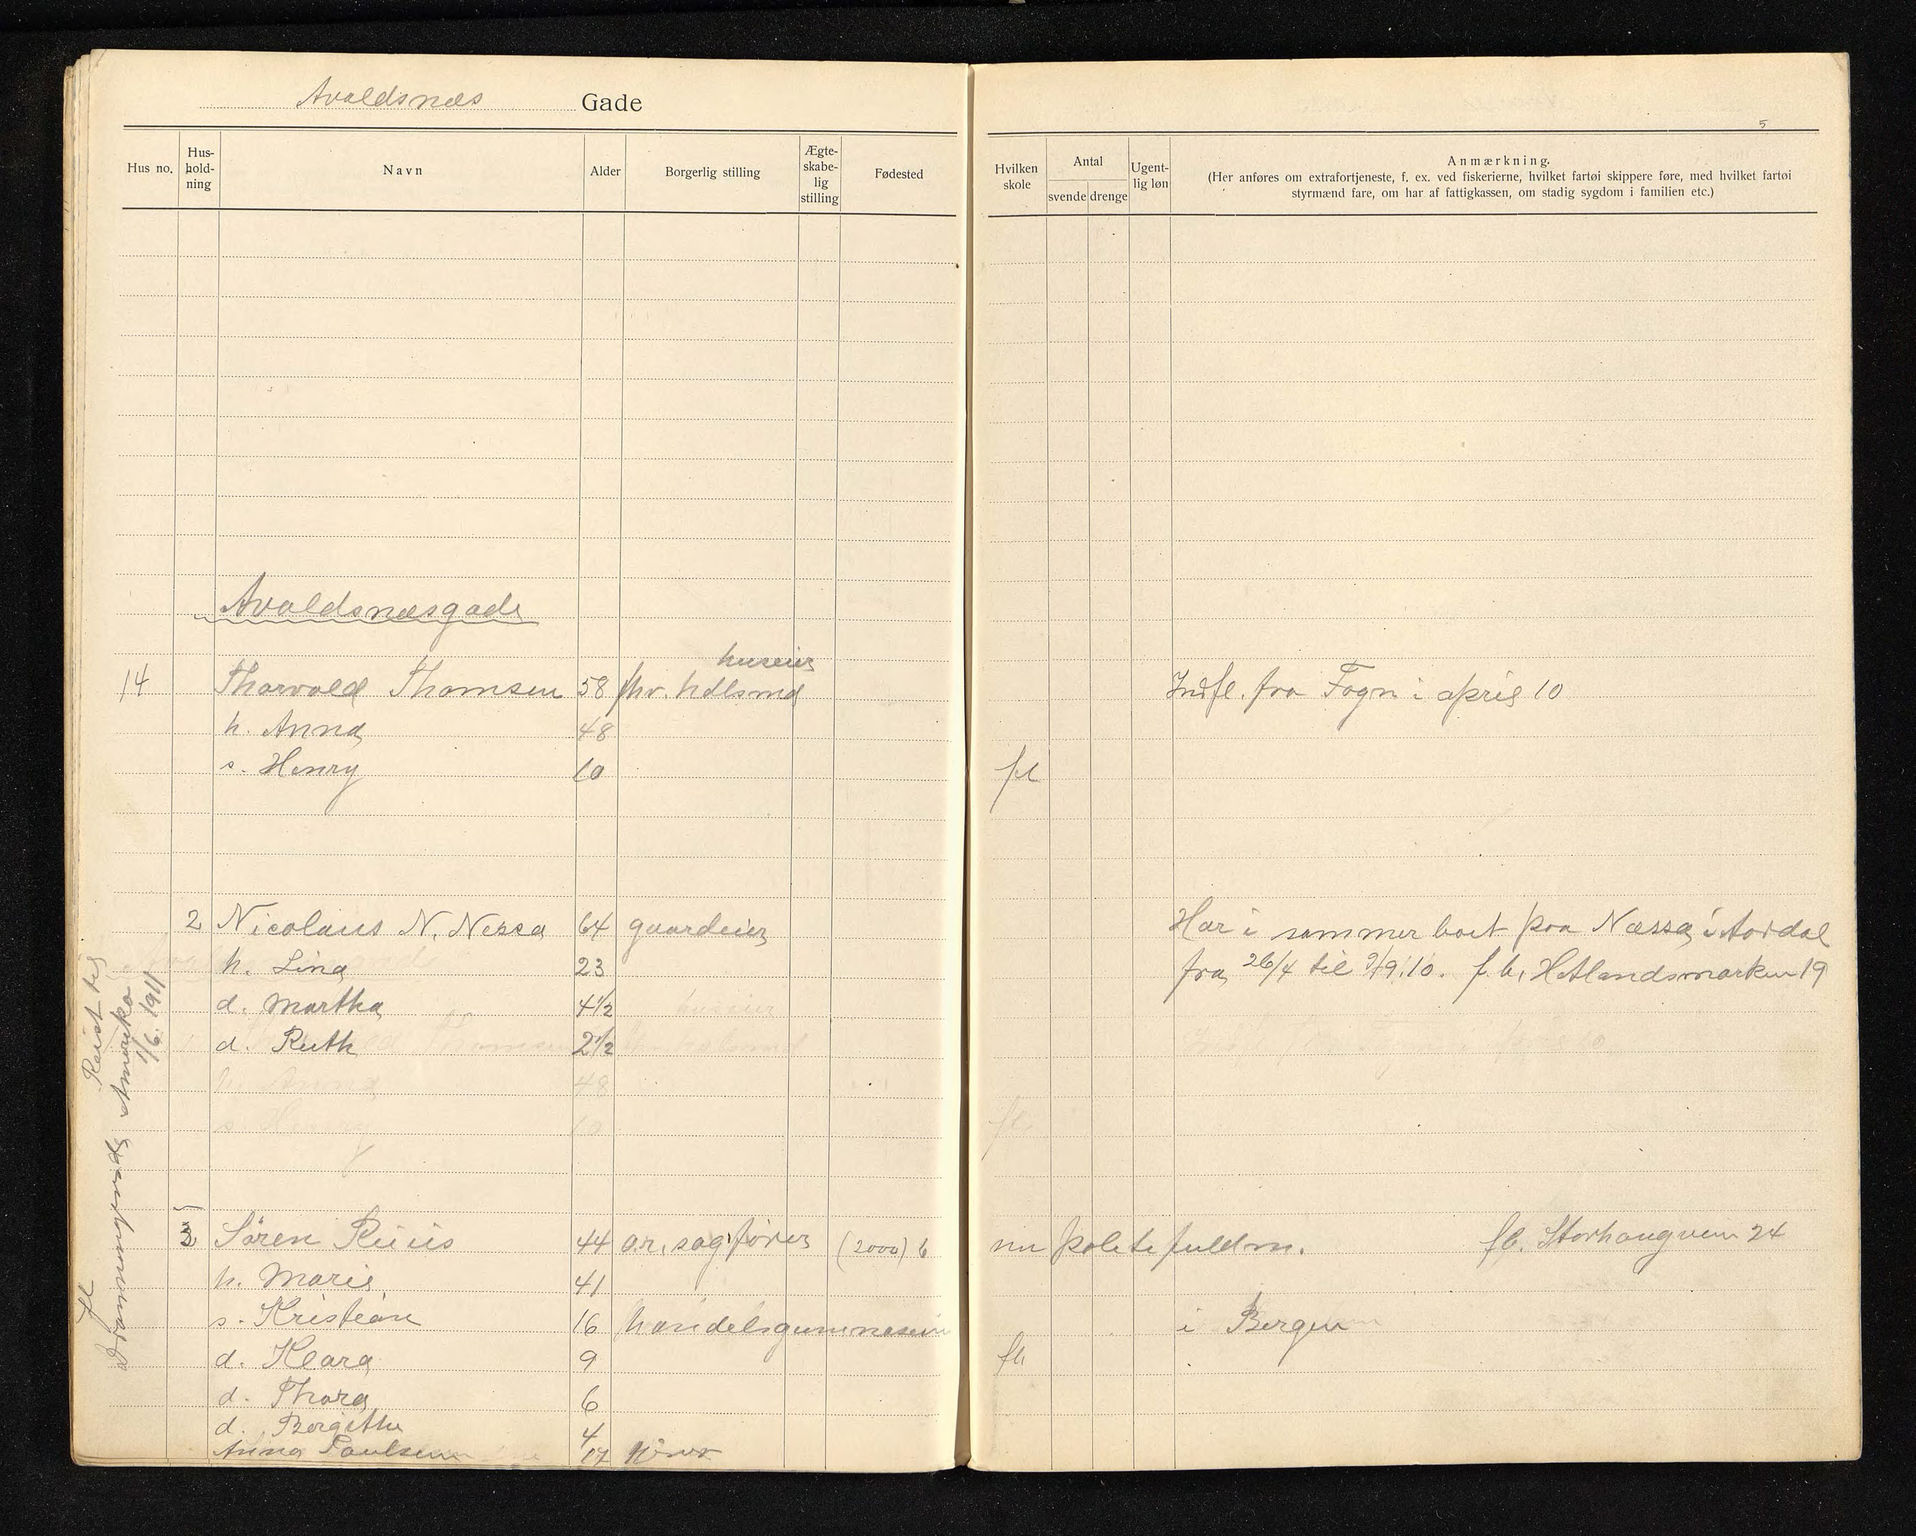 Avaldsnæs Gade
5
Hus no. Hus-hold-ning Navn Alder Borgerlig stilling Ægte-skabe-lig stilling Fødested Hvilken skole Antal svende drenge Ugent-lig løn Anmærkning.
(Her anføres om extrafortjeneste, f. ex. ved fiskerierne, hvilket fartøi skippere føre, med hvilket fartøi
styrmænd fare, om har af fattigkassen, om stadig sygdom i familien etc.)
Avaldsnæsgade
huseier
14 Thorvald Thomsen 58 fhv. hdlsmd Indfl. fra Fogn i april 10
h. Anna 48
s. Henry 10 fl
2 Nicolaus N. Nessa 64 gaardeier Har i sommer boet paa Næssa i Aardal
h. Lina 23 fra 26/4 til 9/9.10. f. b. Hetlandsmarken 19
d. Martha 4 1/2
d. Ruth 2 1/2
Reist til
Amerika
1/6 1911
fl
3 Søren Ruus 44 o.r. sagfører (2000) b nu politifuldm. fb. Storhaugveien 24
h. Marie 41
s. Kristian 16 handelsgymnasium i Bergen
d. Klara 9 fb
d. Thora 6
d. Bergithe 4
Anna Paulsen 17